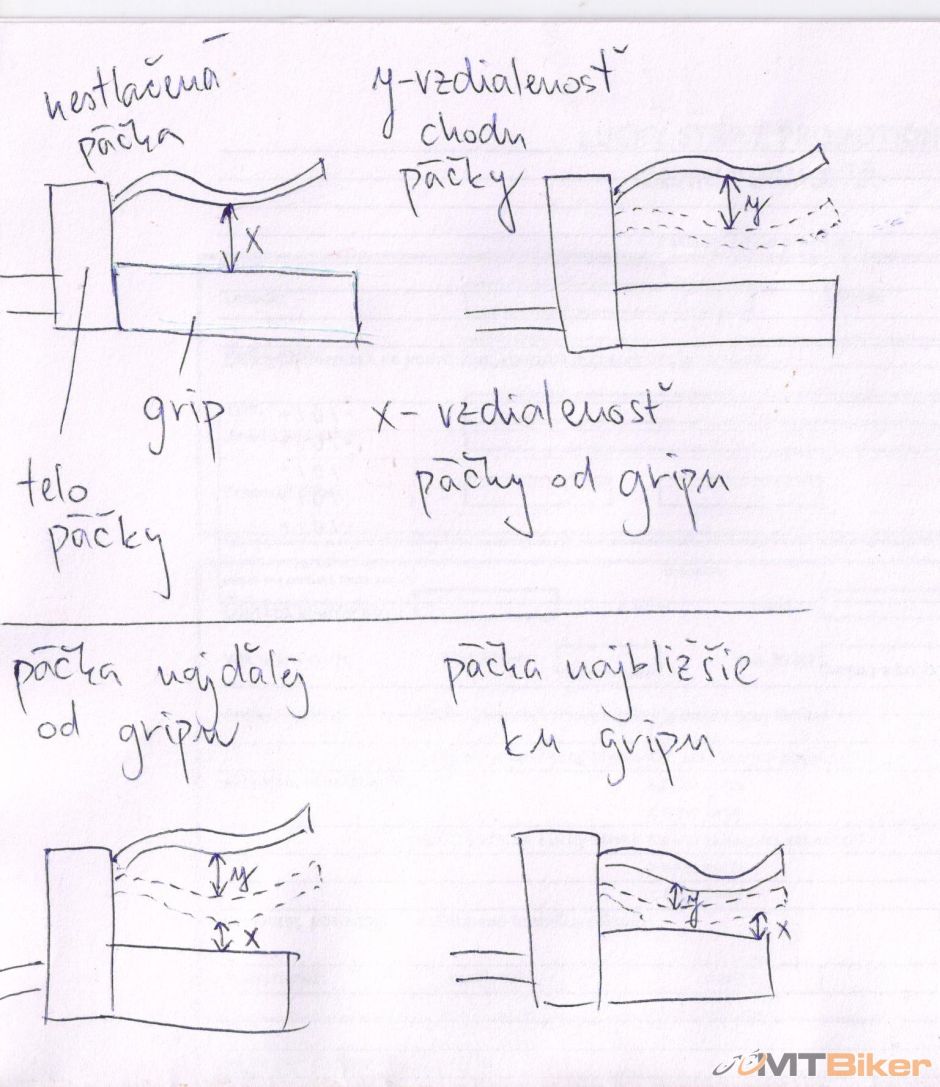 nestlačená
páčka
y-vzdialenosť
chodu
páčky
x
y
grip
telo
páčky
x - vzdialenosť
páčky od gripu
páčka najďalej
od gripu
páčka najbližšie
ku gripu
y
x
y
x
MTBiker